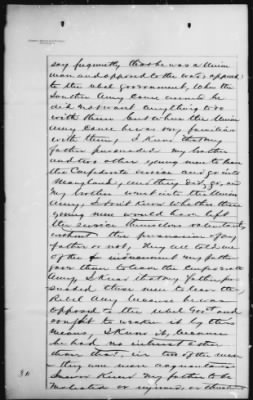 say frequently that he was a Union
man and opposed to the war, opposed
to the rebel government, when the
Southern Army came around he
did not want anything to do
with them but when the Union
Army came he was very familiar
with them, I know that my
father persuaded my brother
and two other young men to leave
the Confederate service and go into
Maryland, and they did go, and
my brother went into the Union
Army, I don't know whether these
young men would have left
the service themselves voluntarily
without the persuasion of my
father or not, they all told me
of the inducement my father
gave them to leave the Confederate
Army, I know that my father per-
suaded these men to leave the
Rebel Army because he was
opposed to the rebel Gov't and
sought to weaken it by this
means, I know it, because
he had no interest other
than that, in two of the men
they were mere acquaintances
I never knew my father to be
molested or injured or threat-